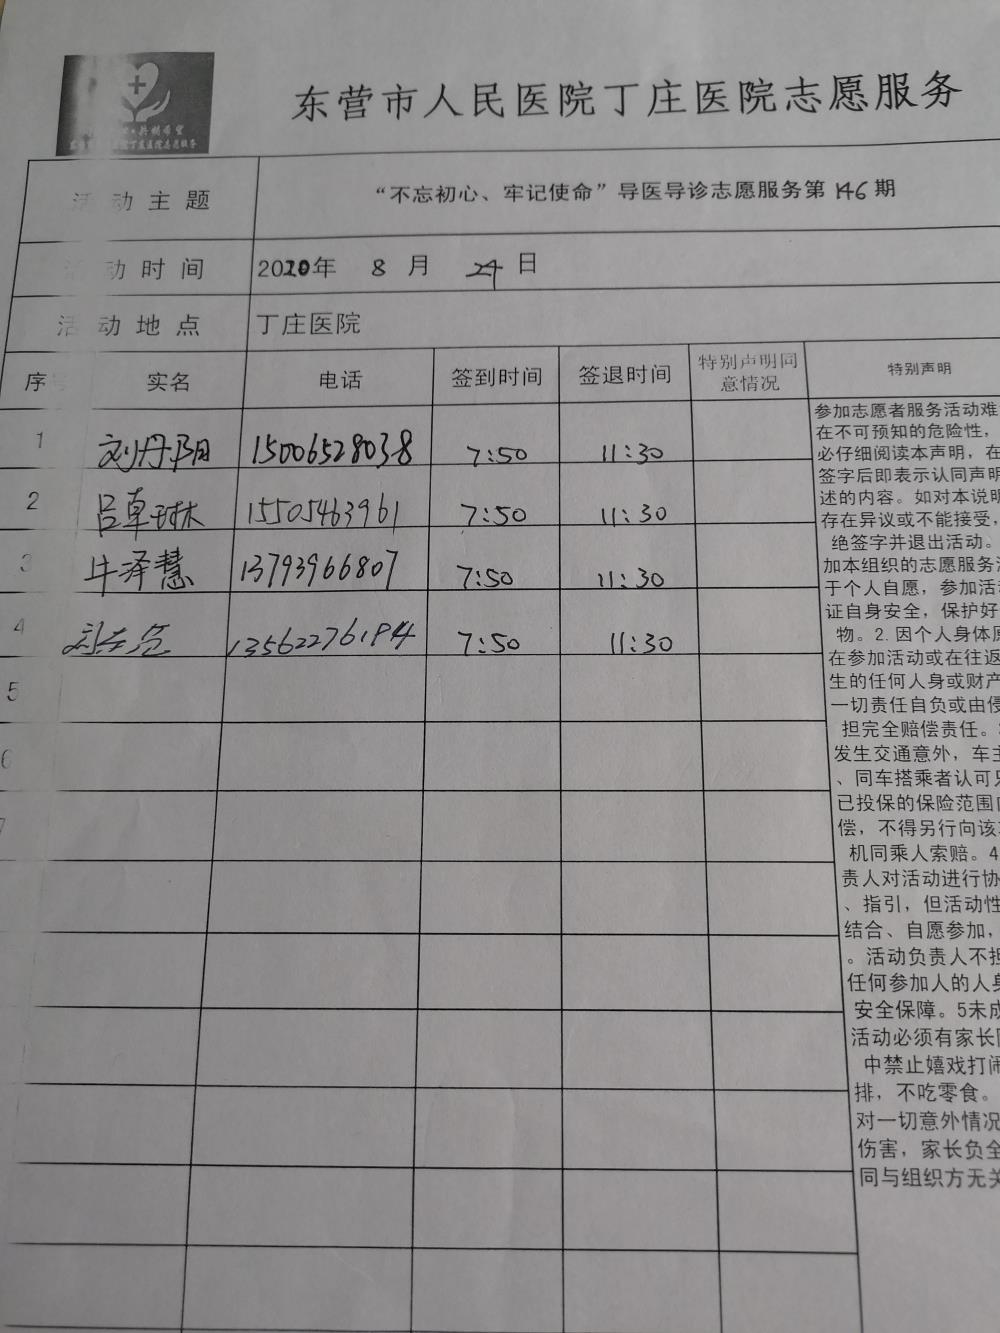 共创希望
东营市人民医院丁庄医院志愿服务
东营市人民医院丁庄医院志愿服务
活动主题
“不忘初心、牢记使命”导医导诊志愿服务第146期
活动时间 2020年 8 月 24 日
活动地点 丁庄医院
序号 实名 电话 签到时间 签退时间 特别声明同意情况 特别声明
1 刘丹阳 15006528038 7:50 11:30
2 吕卓琳 15505463961 7:50 11:30
3 牛泽慧 13793966807 7:50 11:30
4 13562276194 7:50 11:30
5
6
7
参加志愿者服务活动难
在不可预知的危险性，
必仔细阅读本声明，在
签字后即表示认同声明
述的内容。如对本说明
存在异议或不能接受，
绝签字并退出活动。
加本组织的志愿服务活
于个人自愿，参加活动
证自身安全，保护好
物。2.因个人身体原
在参加活动或在往返
生的任何人身或财产
一切责任自负或由侵
担完全赔偿责任。
发生交通意外，车主
、同车搭乘者认可只
已投保的保险范围内
偿，不得另行向该
机同乘人索赔。4
责人对活动进行协
、指引，但活动性
结合、自愿参加，
。活动负责人不担
任何参加人的人身
安全保障。5未成
活动必须有家长陪
中禁止嬉戏打闹
排，不吃零食。
对一切意外情况
伤害，家长负全
同与组织方无关